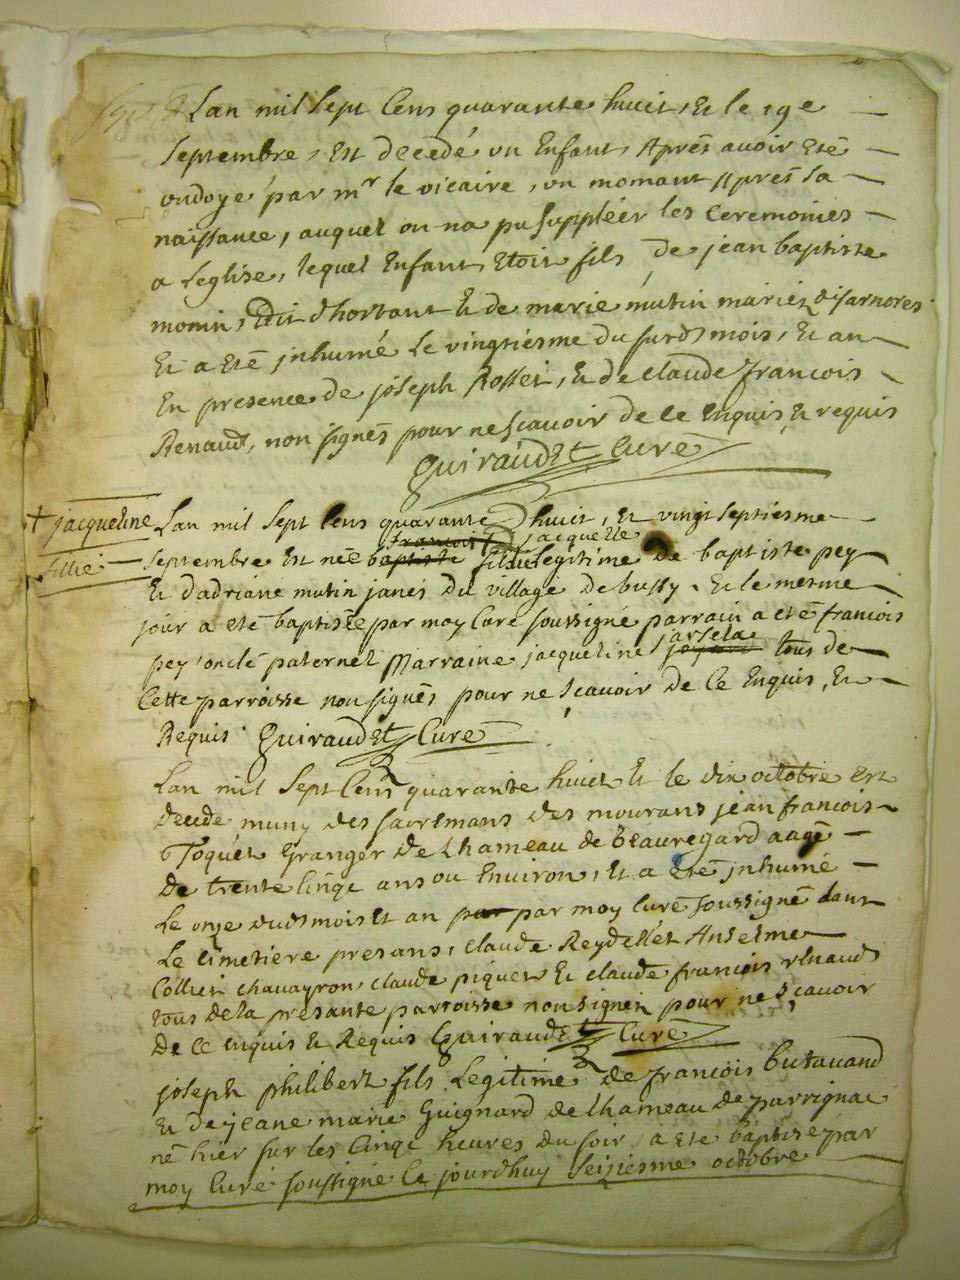 Lan mil sept Cens quarante huict, Et le 19e
septembre, Est decedé un Enfant, Aprés avoir eté
ondoyé par mr le vicaire, un momant Aprés sa
naissance, auquel on na pu suppléer les Ceremonies
a Leglise, lequel Enfant, Etoit fils de jean baptiste
monin, dit Et de marie mutin mariez
Et a eté jnhumé Le vingtiésme du susds mois, Et an
En presence de joseph Rosset, Et de claude francois
Renaud, non signés pour ne scavoir de ce Enquis et requis
Guiraudet Curé
+ jacqueline Lan mil sept Cens quarante huict, Et vingt septiesme
francois jacquette
fillie septembre Est neé baptiste fille Legitime de baptiste pey
Et dadriane mutin janes du village de bussy. Et le mesme
jour a eté baptisée par moy Curé soussigné parrain a eté francois
pey oncle paternel Marraine jacqueline tous de
Cette parroisse non signés pour ne scavoir de Ce Enquis, Et
Requis Guiraudet Curé
Lan mil sept Cens quarante huict Et le dix octobre est
decede muny des sacremans des mourans jean francois
Toquet Granger de Lhameau de beauregard aagé
de trente Cinqe ans ou Environ, Et a Eté jnhumé
Le onze duds mois Et an par par moy Curé soussigné dans
Le Cimetiere presans, claude Reydellet Anselme
Collier chavayron, claude piquet Et claude francois renaud
tous de la presante parroisse non signez pour ne scavoir
De ce enquis Et Requis Guiraudet Curé
joseph philibert fils Legitime de francois butavand
Et de jeane marie Guignard de Lhameau de parrignac
né hier sur les Cinqe heures du soir a eté baptizé par
moy Curé soussigné Ce jourdhuy seiziesme octobre